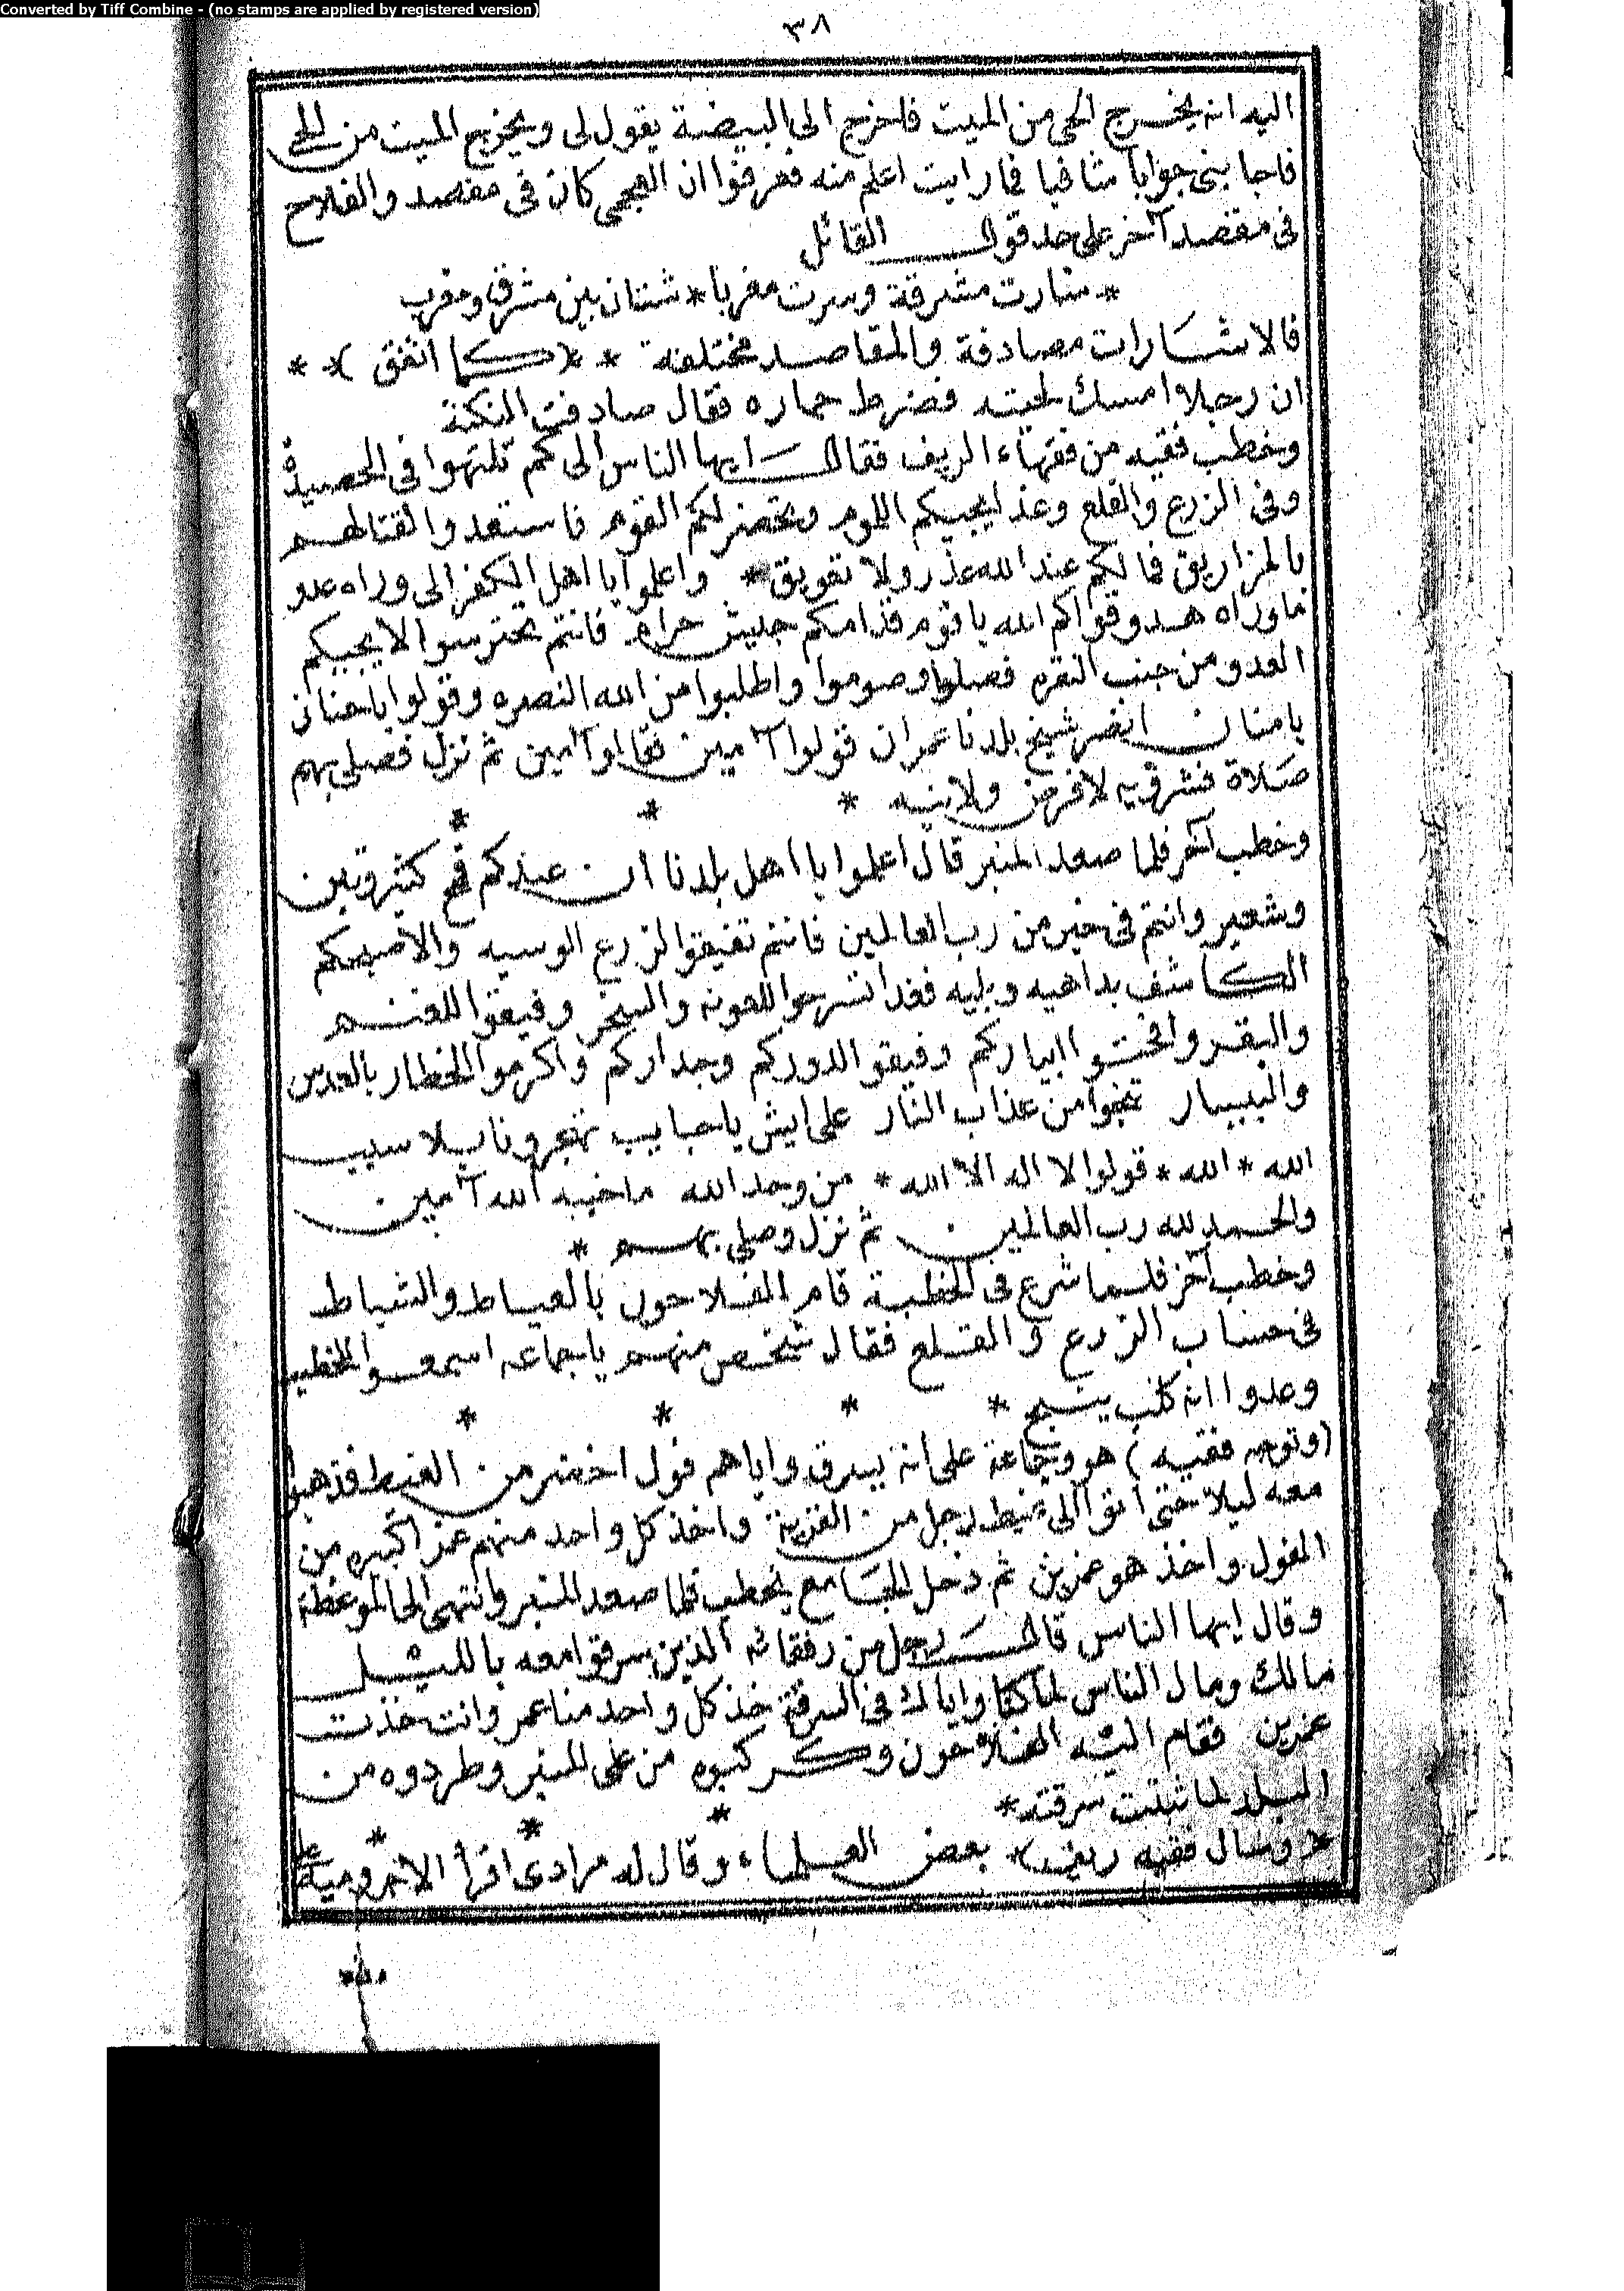 Converted by Tiff Combine - (no stamps are applied by registered version)
٣٨
اليه انه يخرج الحى من الميت فاخرج الى البيضة يقول لى ويخرج الميت من الحى
فاجابنى جوابا شافيا فما رايت اعلم منه فعرفوا ان العجمى كان فى مقصد والفلاح
فى مقصد آخر على حد قول القائل
* سارت مشرقة وسرت مغربا * شتان بين مشرق ومغرب
فالاشارات مصادفة والمقاصد مختلفة * * كما اتفق * *
ان رجلا امسك لحيته فضرط حماره فقال صادفت النكتة
وخطب فقيه من فقهاء الريف فقال ايها الناس الى كم تلتهوا فى الحصيدة
وفى الزرع والقلع وغدا يجيكم اللوم ويحضر لكم القوم فاستعدوا لقتالهم
بالمزاريق فما لكم عند الله عذر ولا تعويق * واعلموا يا اهل الكفر الى وراه عدو
ما وراه هدو قواكم الله يا قوم قدامكم جليش حرام فانتم تحترسوا لا يجيكم
العدو من جنب النقره فصلوا وصوموا واطلبوا من الله النصره وقولوا يا حنان
يا منان انصر شيخ بلدنا عمران قولوا آمين فقالوا آمين ثم نزل فصلى بهم
صلاة مشرقيه لا فرض ولا نيه * * *
وخطب آخر فلما صعد المنبر قال اعلموا يا اهل بلدنا ان عندكم قمح كثير وتبن
وشعير وانتم فى خير من رب العالمين فانتم تفيقوا لزرع الوسيه والا صبحكم
الكاشف بداهيه وبليه فغدا تسرحوا للعونه والسخر وفيقوا للغنم
والبقر وافحتوا ابياركم وفيقوا لدوركم وجداركم واكرموا الخطار بالعدس
والبيسار تنجوا من عذاب النار على ايش يا حبايب تهجرونا بلا سبب
الله * الله * قولوا لا اله الا الله * من وحد الله ما خيبه الله آمين
والحمد لله رب العالمين ثم نزل وصلى بهم *
وخطب آخر فلما شرع فى الخطبة قام الفلاحون بالعياط والشياط
فى حساب الزرع والقلع فقال شخص منهم يا جماعه اسمعوا الخطيب
وعدوا انه كلب ينبح * * * *
(وتوجه فقيه) هو وجماعة على انه يسرق واياهم فول اخضر من الغيط فذهبوا
معه ليلا حتى اتوا الى غيط رجل من القرية واخذ كل واحد منهم غمرا كبيره من
الفول واخذ هو غمرين ثم دخل الجامع يخطب فلما صعد المنبر وانتهى الى الموعظة
وقال ايها الناس قال رجل من رفقائه الذين سرقوا معه بالليل
مالك ومال الناس لما كنا واياك فى السرقة خذ كل واحد منا غمر وانت خذت
غمرين فقام اليه الفلاحون وكركبوه من على المنبر وطردوه من
البلد لما ثبتت سرقته * * * *
* وسال فقيه ريفى * بعض العلماء وقال له مرادى اقرأ الاجرومية
على